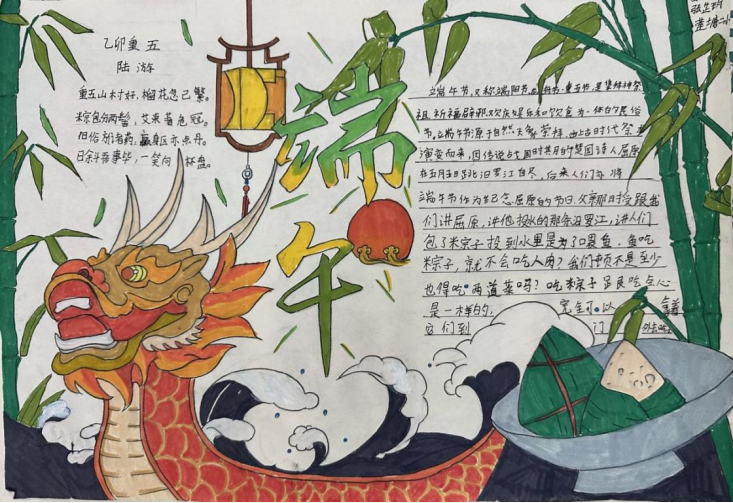 乙卯重五
陆游
重五山村好，榴花忽已繁。
粽包分两髻，艾束著危冠。
旧俗方储药，羸躯亦点丹。
日斜吾事毕，一笑向杯盘。
端午
端午节，又称端阳节、重五节，是集拜神祭
祖、祈福辟邪、欢庆娱乐和饮食为一体的民俗
节，端午节源于自然天象崇拜，由上古时代祭
演变而来，因传说战国时期的楚国诗人屈原
在五月五日跳汨罗江自尽，后来人们
端午节作为纪念屈原的节日，
们讲屈原，讲他投水的那条汨罗江，讲人们
包了粽子投到水里是为了喂鱼，鱼吃
粽子，就不会吃人肉？我们
也得吃两道菜吗？吃粽子
是一样的，完全可以
它们到